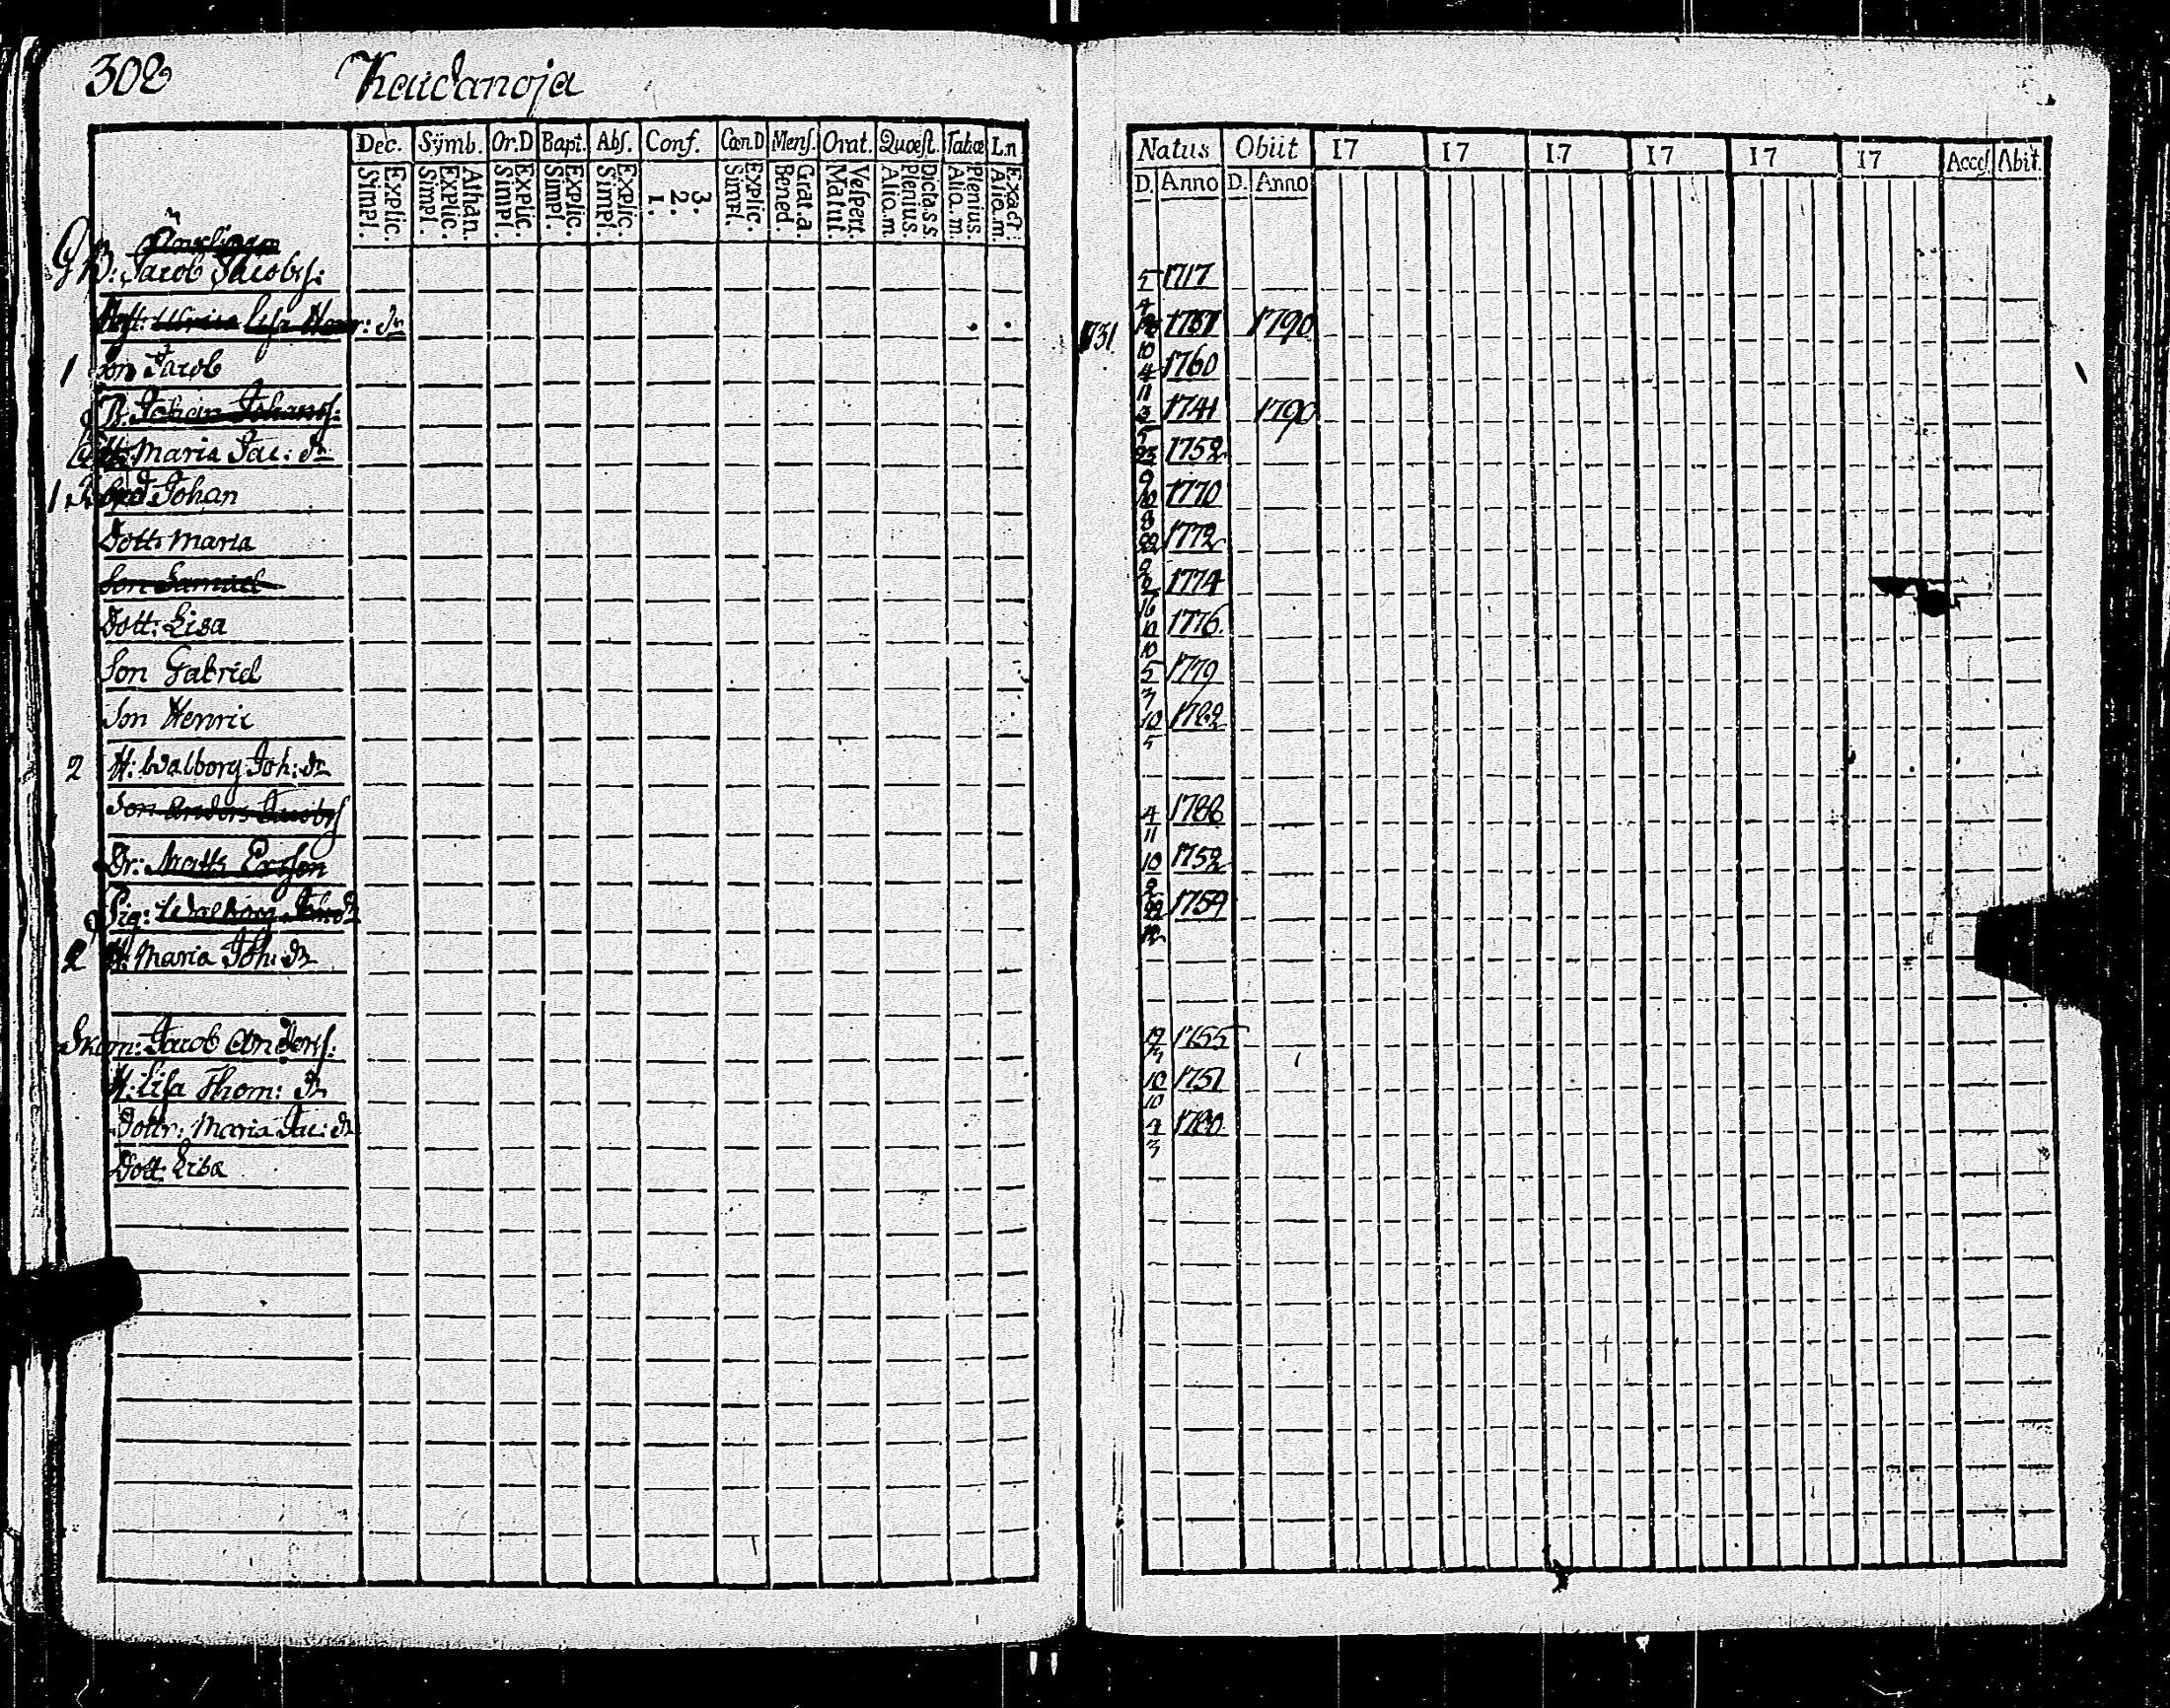 302 Keudanoja
Dec. Sÿmb. Or.D Bapt. Abſ. Conf. Cœn.D Menſ. Orat. Quæſt. Tabulæ L.n
Explic. Simpl. Athan. Explic. Simpl. Explic. Simpl. Explic. Simpl. Explic. Simpl. 3. 2. 1. Explic. Simpl. Grat.a. Bened. Veſpert. Matut. Dicta.s.s. Plenius. Aliq.m. Plenius. Aliq.m. Exact. Aliq.m.
Natus Obiit 17 17 17 17 17 17 Acceſ. Abit.
D. Anno D. Anno
B: Jacob Jacobſ: 5 1717
4
Lisa Henr: dr 1731 1790
10
1 Son Jacob 4 1760
11
B. Johan Johansſ: 3 1741 1790
5
Maria Jac: dr 23 1752
9
1 Johan 10 1770
8
Dott: Maria 22 1772
9
Son Samuel 6 1774
Dott: Lisa 1776
10
Son Gabriel 5 1779
7
Son Henric 10 1782
5
2 H: Walborg Joh: dr
Son Anders Jacobſ 4 1788
11
Dr: Matts Erſson 10 1752
2
Pig: Walborg 22 1759
12
2 H: Maria Joh: dr
Jacob Andersſ: 19 1755
7
H: Lisa Thom: dr 10 1751
10
Dottr: Maria Jac: dr 4 1780
3
Dott: Lisa